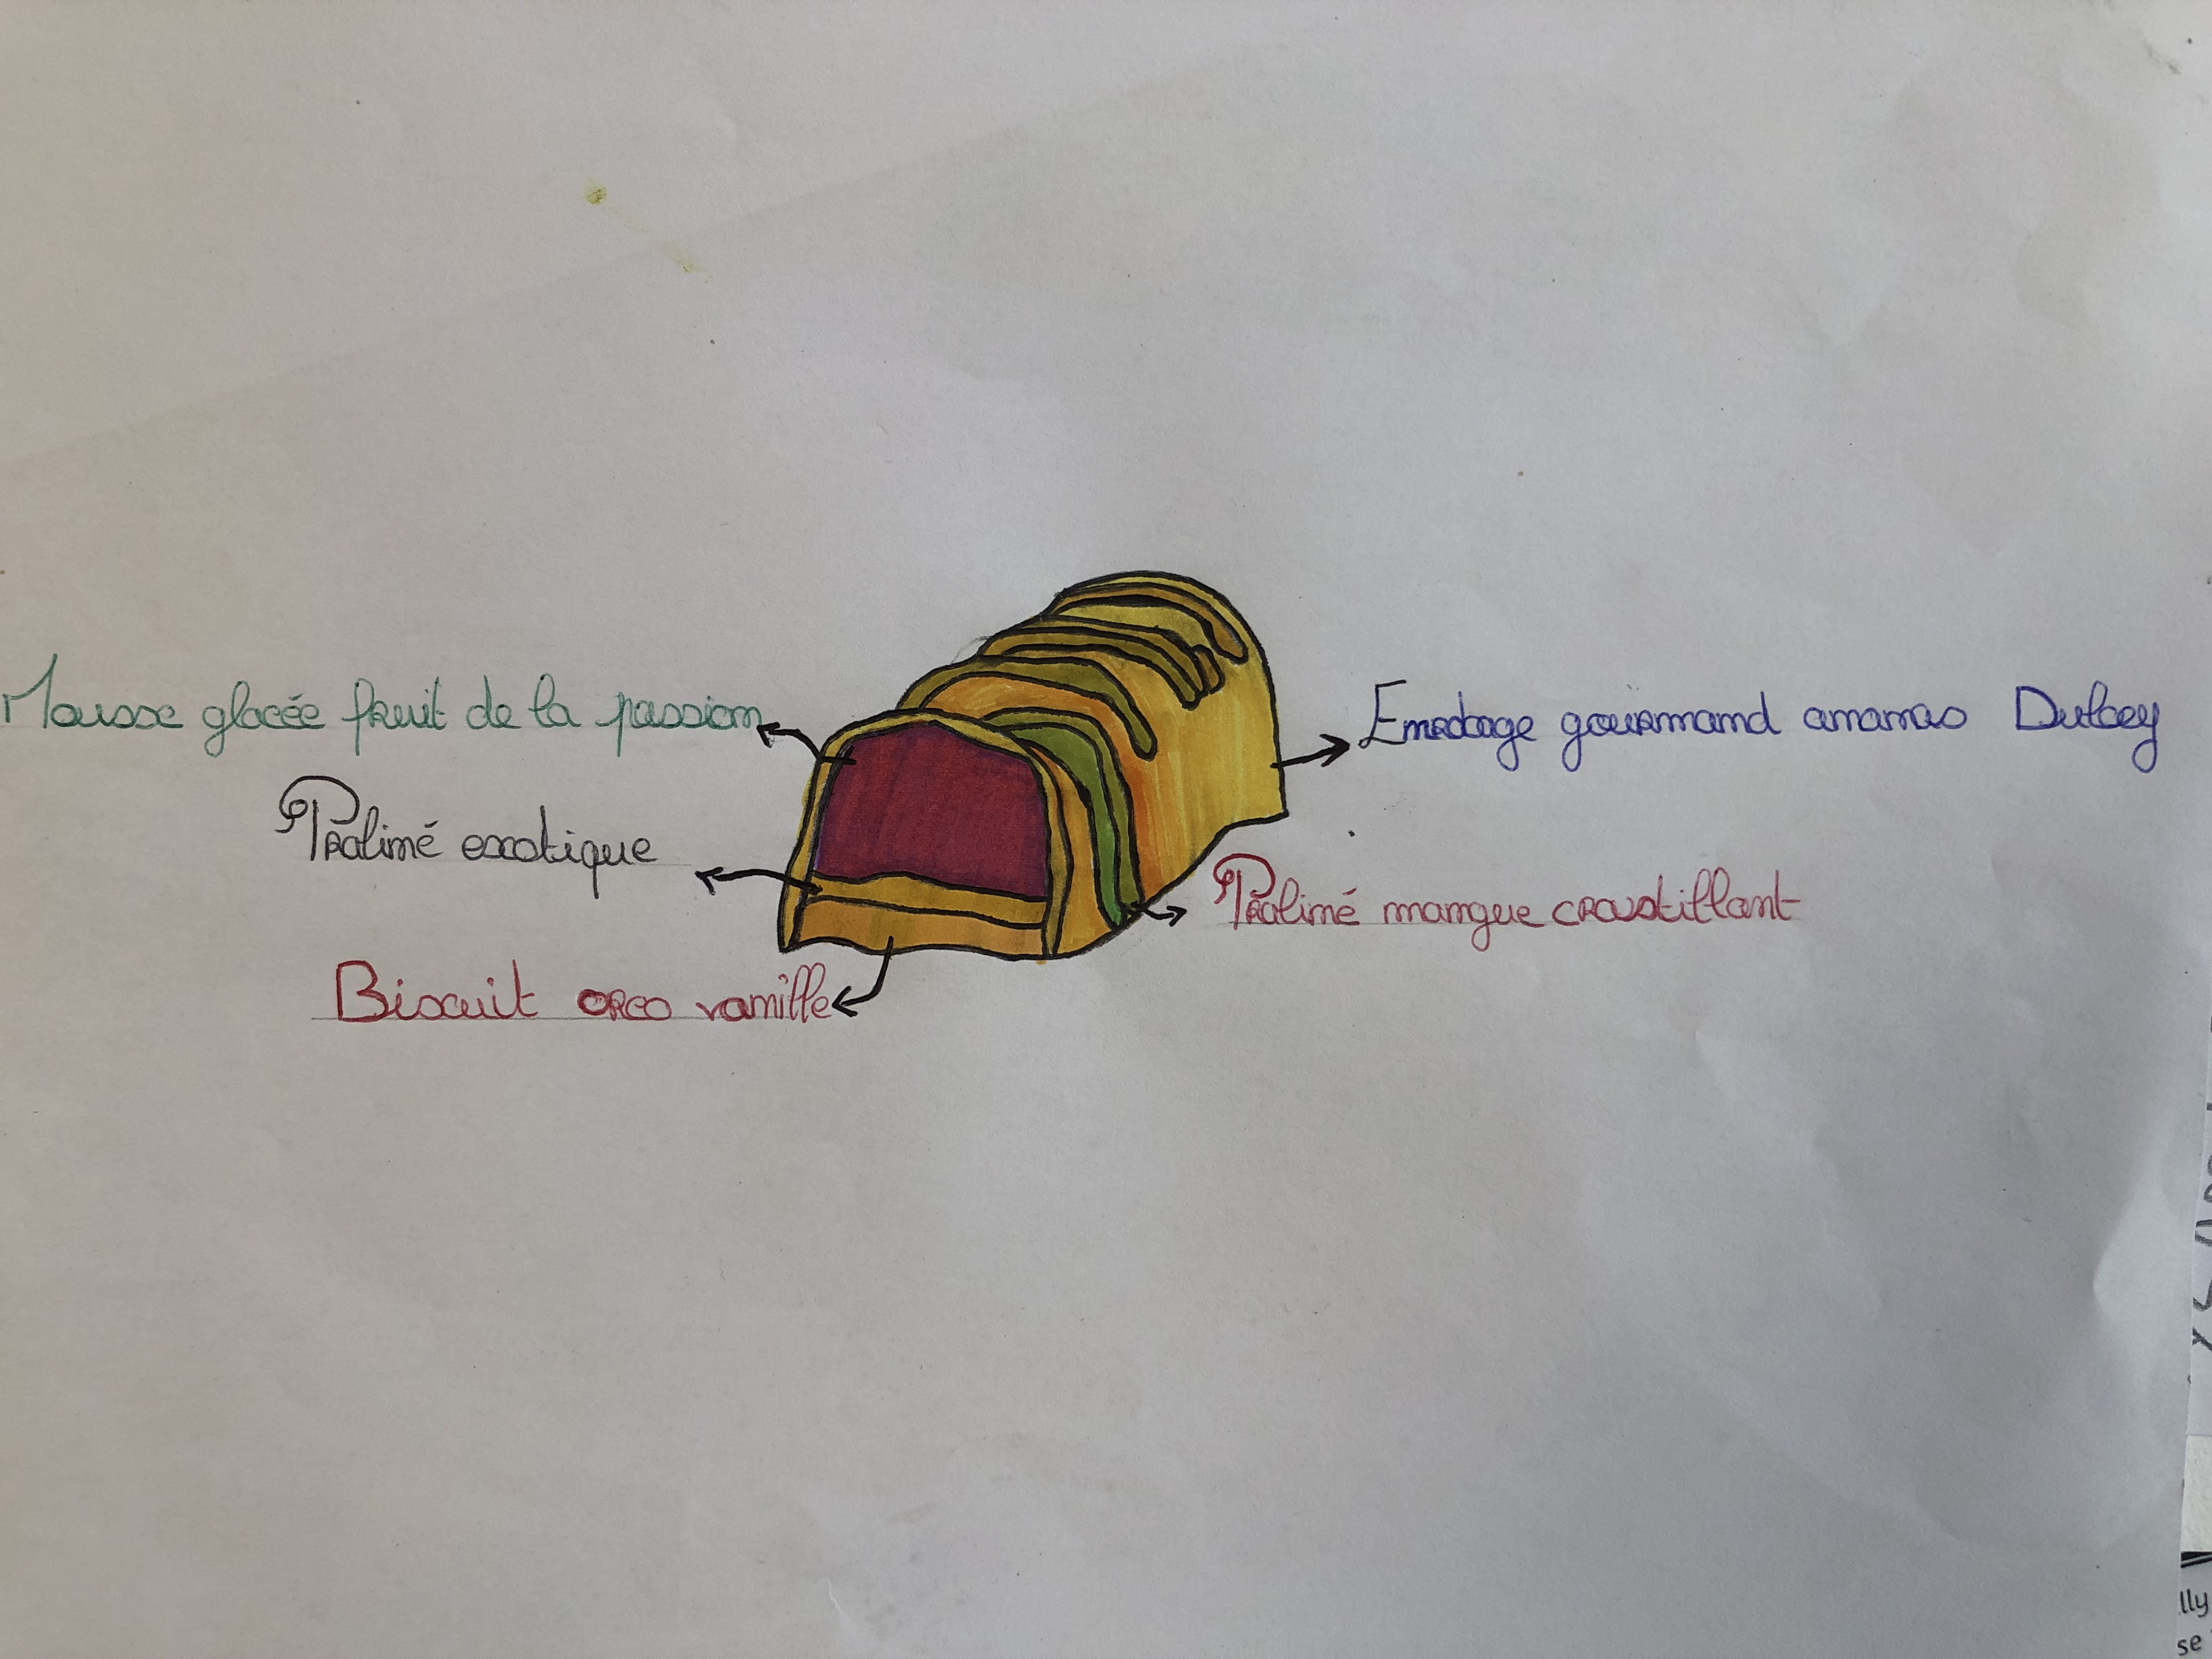 Mousse glacée fruit de la passion
Enrobage gourmand ananas Dulcey
Praliné exotique
Praliné mangue croustillant
Biscuit oreo vanille
lly
se